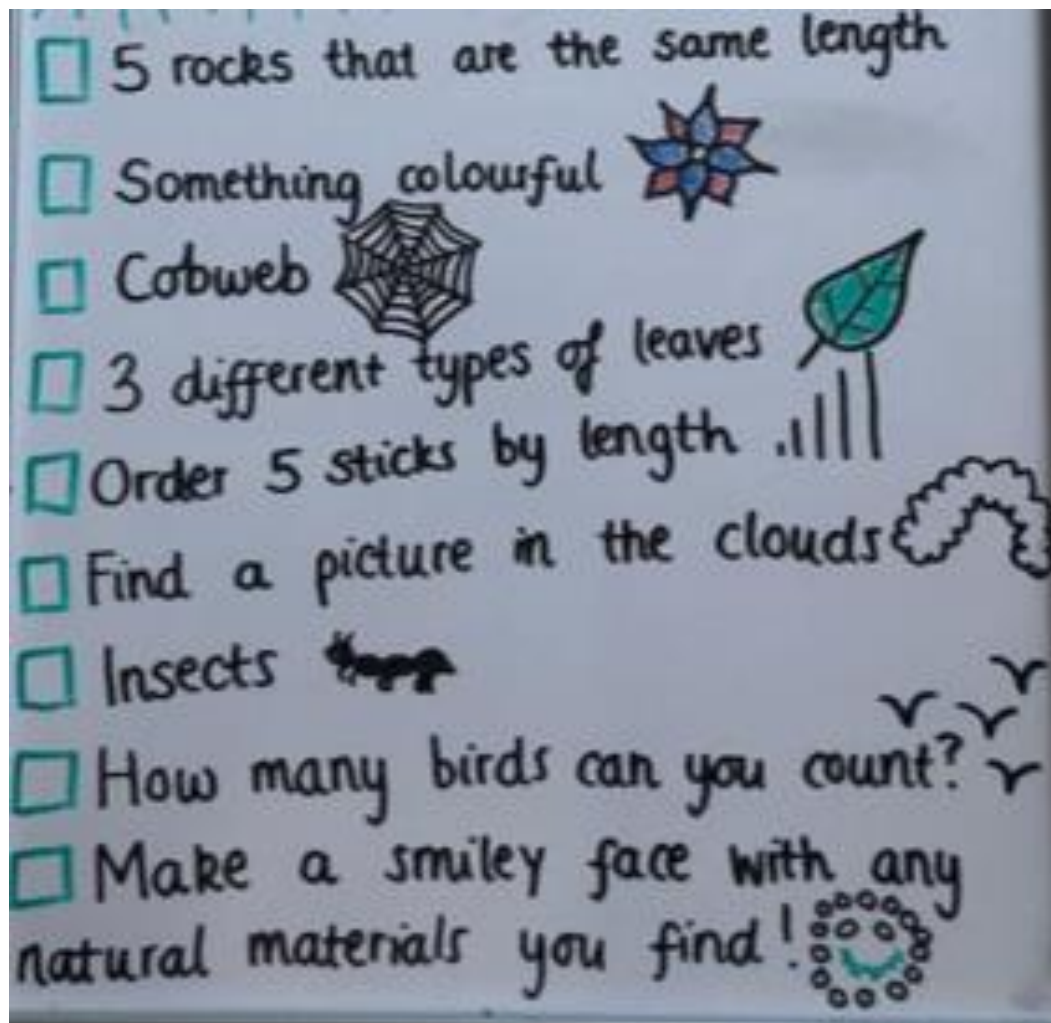 5 rocks that are the same length
Something colourful
Cobweb
3 different types of leaves
Order 5 sticks by length
Find a picture in the clouds
Insects
How many birds can you count?
Make a smiley face with any
natural materials you find!